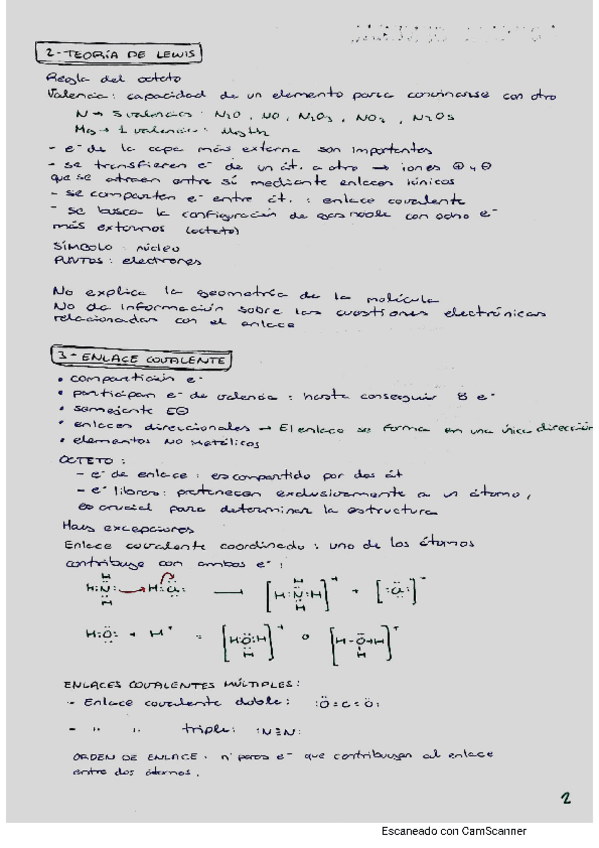 2-TEORÍA DE LEWIS
Regla del octeto
Valencia: capacidad de un elemento para convinarse con otro
N → 5 valencias: N2O, NO, N2O3, NO2, N2O5
Mg → 1 valencia: MgH2
- e⁻ de la capa más externa son importantes
- se transfieren e⁻ de un át. a otro → iones ⊕ y ⊖
que se atraen entre sí mediante enlaces iónicos
- se comparten e⁻ entre át.: enlace covalente
- se busca la configuración de gas noble con ocho e⁻
más externos (octeto)
SÍMBOLO: núcleo
PUNTOS: electrones
No explica la geometría de la molécula
No da información sobre las cuestiones electrónicas
relacionadas con el enlace
3-ENLACE COVALENTE
• compartición e⁻
• participan e⁻ de valencia: hasta conseguir 8 e⁻
• semejante E⊖
• enlaces direccionales → El enlace se forma en una única dirección
• elementos NO metálicos
OCTETO:
- e⁻ de enlace: es compartido por dos át
- e⁻ libres: pertenecen exclusivamente a un átomo,
es crucial para determinar la estructura
Hay excepciones
Enlace covalente coordinado: uno de los átomos
contribuye con ambos e⁻:
H
H:N: → H:Cl: → [H:N:H]⁺ + [:Cl:]⁻
H
H:O: + H⁺ = [H:O:H]⁺ o [H-O→H]⁺
H H H
ENLACES COVALENTES MÚLTIPLES:
- Enlace covalente doble: :O=C=O:
- " " triple: :N≡N:
ORDEN DE ENLACE: nº pares e⁻ que contribuyen al enlace
entre dos átomos.
2
Escaneado con CamScanner